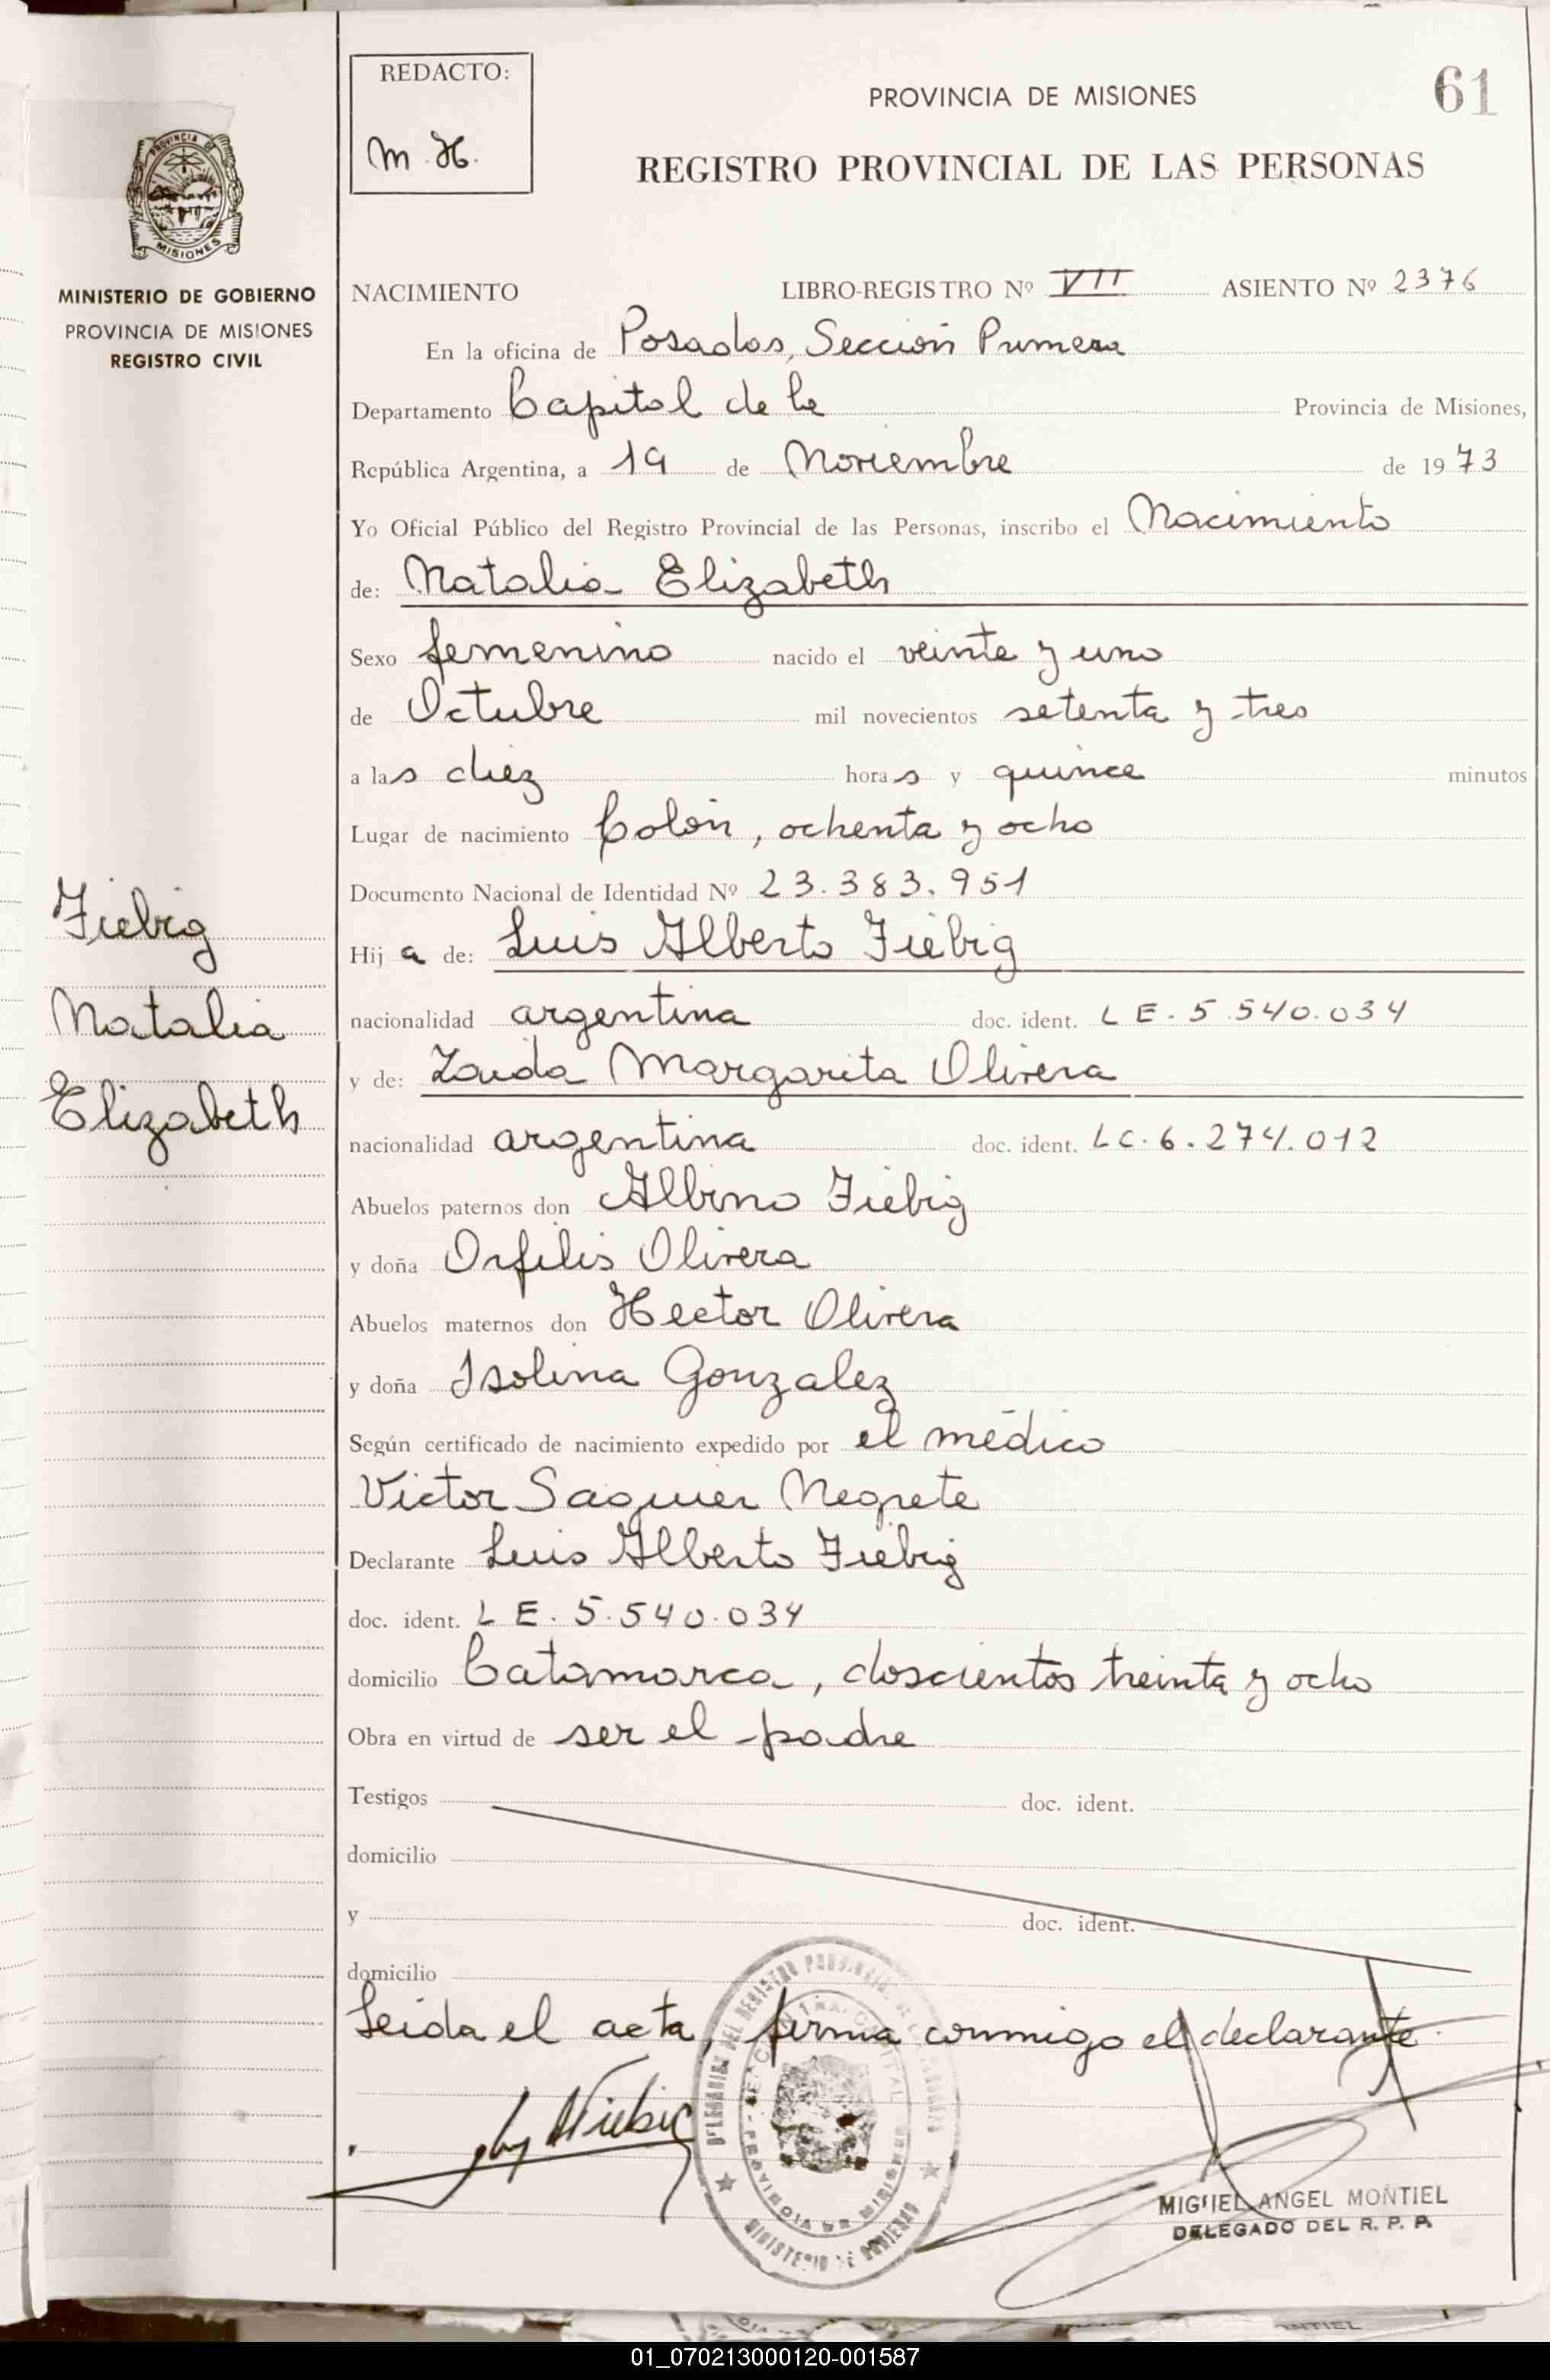 61
REDACTO:
M. H.
PROVINCIA DE MISIONES
REGISTRO PROVINCIAL DE LAS PERSONAS
PROVINCIA DE
MISIONES
MINISTERIO DE GOBIERNO
PROVINCIA DE MISIONES
REGISTRO CIVIL
NACIMIENTO LIBRO-REGISTRO Nº VII ASIENTO Nº 2376
En la oficina de Posadas, Sección Primera
Departamento Capital de la Provincia de Misiones,
República Argentina, a 19 de Noviembre de 1973
Yo Oficial Público del Registro Provincial de las Personas, inscribo el Nacimiento
de: Natalia Elizabeth
Sexo femenino nacido el veinte y uno
de Octubre mil novecientos setenta y tres
a las diez horas y quince minutos
Lugar de nacimiento Colón, ochenta y ocho
Documento Nacional de Identidad Nº 23.383.951
Hija de: Luis Alberto Fiebig
nacionalidad argentina doc. ident. LE. 5.540.034
y de: Zaida Margarita Olivera
nacionalidad argentina doc. ident. LC. 6.274.012
Abuelos paternos don Albino Fiebig
y doña Orfilis Olivera
Abuelos maternos don Hector Olivera
y doña Isolina Gonzalez
Según certificado de nacimiento expedido por el médico
Victor Saguier Negrete
Declarante Luis Alberto Fiebig
doc. ident. LE. 5.540.034
domicilio Catamarca, doscientos treinta y ocho
Obra en virtud de ser el padre
Testigos doc. ident.
domicilio
y doc. ident.
domicilio
Leida el acta, firma conmigo el declarante.
Fiebig
Natalia
Elizabeth
MIGUEL ANGEL MONTIEL
DELEGADO DEL R. P. P.
PROVINCIA DE MISIONES
MINISTERIO DE GOBIERNO
01_070213000120-001587